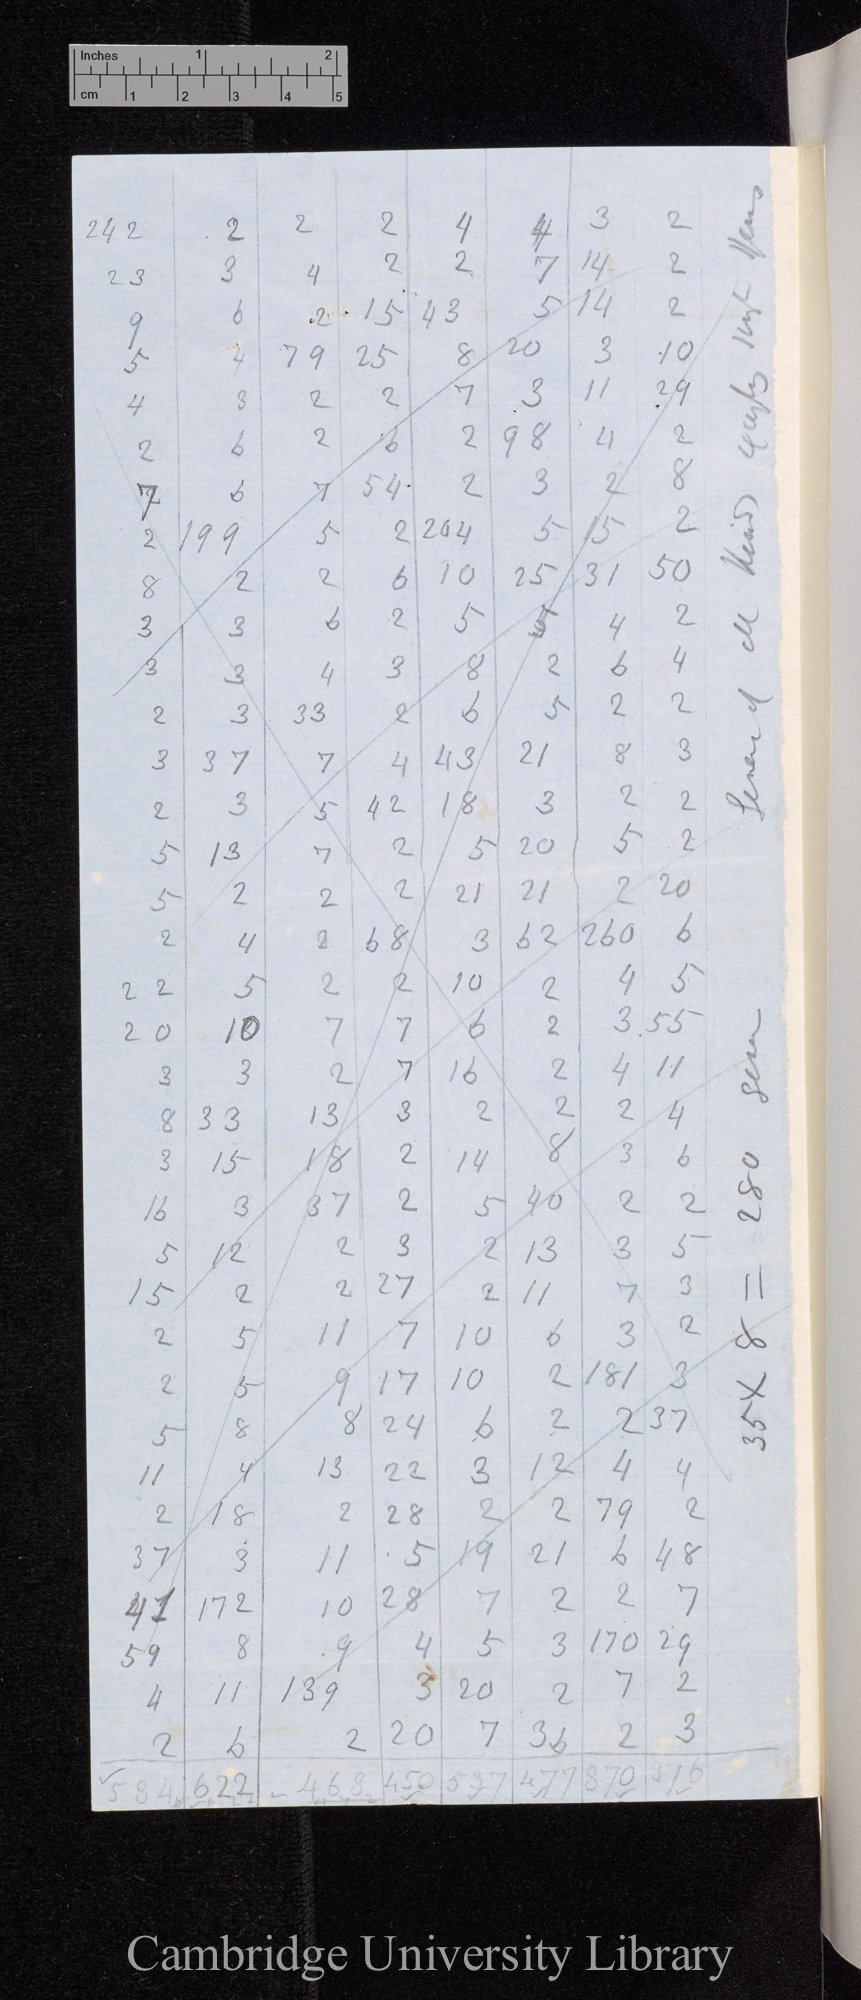 Inches 1 2
cm 1 2 3 4 5
242 2 2 2 4 4 3 2
23 3 4 2 2 7 14 2
9 6 2 15 43 5 14 2
5 4 79 25 8 20 3 10
4 3 2 2 7 3 11 29
2 6 2 6 2 98 4 2
7 6 7 54 2 3 2 8
2 199 5 2 204 5 15 2
8 2 2 6 10 25 31 50
3 3 6 2 5 5 4 2
3 3 4 3 8 2 6 4
2 3 33 2 6 5 2 2
3 37 7 4 43 21 8 3
2 3 5 42 18 3 2 2
5 13 7 2 5 20 5 2
5 2 2 2 21 21 2 20
2 4 2 68 3 62 260 6
22 5 2 2 10 2 4 5
20 10 7 7 6 2 3 55
3 3 2 7 16 2 4 11
8 33 13 3 2 2 2 4
3 15 18 2 14 8 3 6
16 3 37 2 5 40 2 2
5 12 2 3 2 13 3 5
15 2 2 27 2 11 7 3
2 5 11 7 10 6 3 2
2 5 9 17 10 2 181 3
5 8 8 24 6 2 2 37
11 4 13 22 3 12 4 4
2 18 2 28 2 2 79 2
37 3 11 5 19 21 6 48
41 172 10 28 7 2 2 7
59 8 9 4 5 3 170 29
4 11 139 3 20 2 7 2
2 6 2 20 7 36 2 3
584 622 468 450 537 477 870 376
35 X 8 = 280 genera
Genera of all kinds
Cambridge University Library